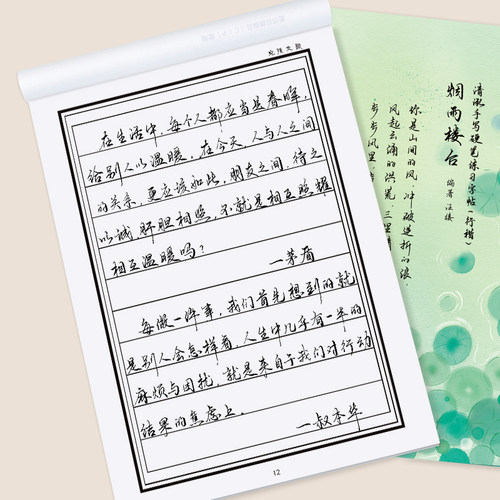 在生活中，每个人都应当是春晖，
给别人以温暖，在今天，人与人之间
的关系，更应该如此，朋友之间，待之
以诚，肝胆相照，不就是相互照耀
相互温暖吗？
一茅盾
每做一件事，我们首先想到的就
是别人会怎样看，人生中几乎有一半的
麻烦与困扰，就是来自于我们对行动
结果的焦虑上。
一叔本华
12
清泓手写硬笔练习字帖（行楷）
烟雨楼台
编著
你是山间的风，冲破迭折的浪，
风起云涌的洪荒